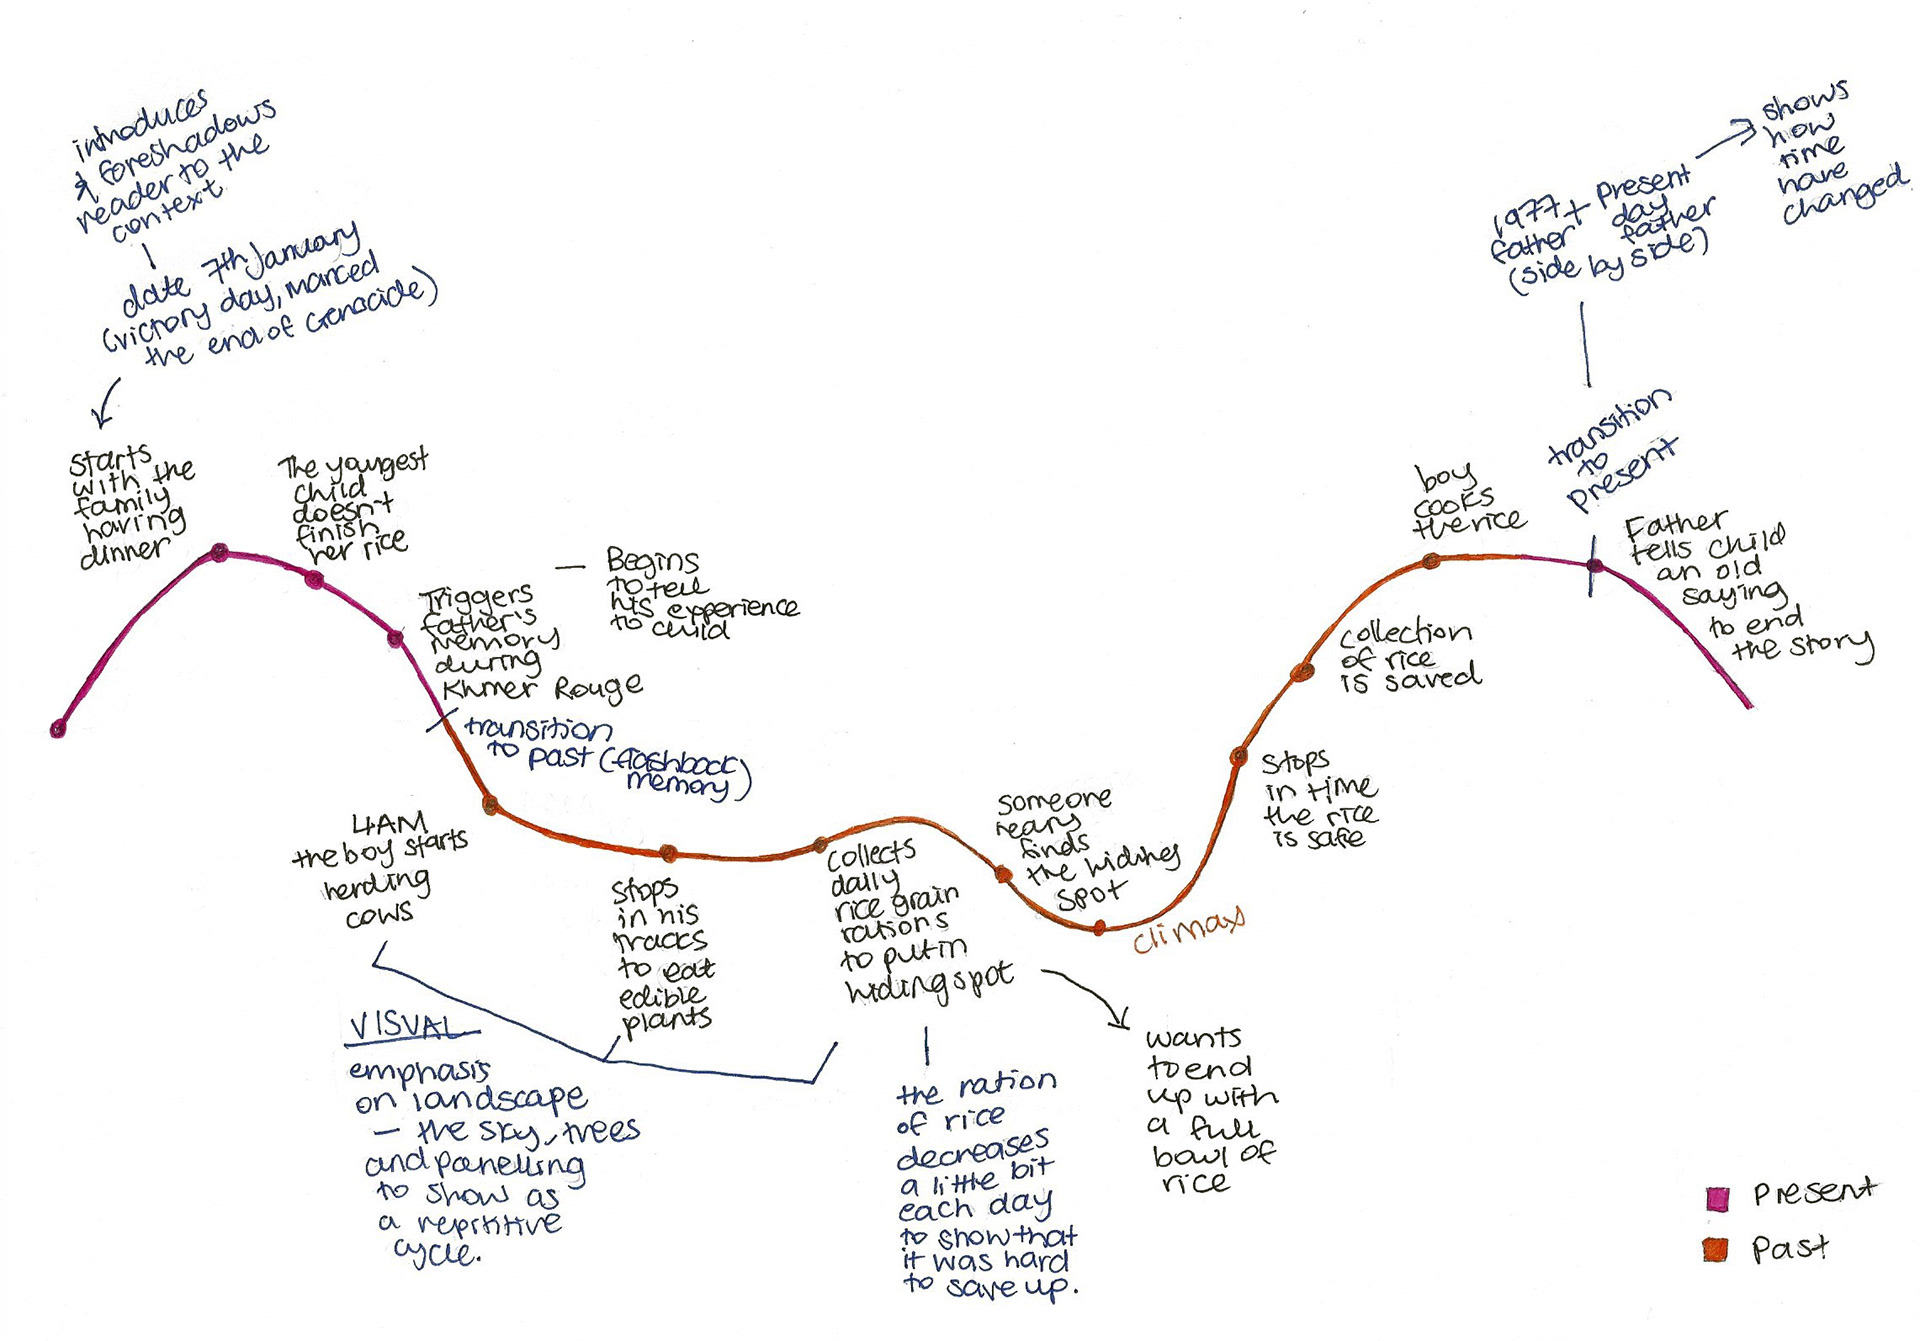 introduces
& foreshadows
reader to the
context
date 7th January
(victory day, marced
the end of Genocide)
starts
with the
family
having
dinner
The youngest
child
doesn't
finish
her rice
Triggers
father's
memory
during
Khmer Rouge
— Begins
to tell
his experience
to child
transition
to past (flashback
memory)
4AM
the boy starts
herding
cows
VISUAL
emphasis
on landscape
— the sky, trees
and panelling
to show as
a repititive
cycle.
stops
in his
tracks
to eat
edible
plants
collects
daily
rice grain
rations
to put in
hiding spot
the ration
of rice
decreases
a little bit
each day
to show that
it was hard
to save up.
wants
to end
up with
a full
bowl of
rice
someone
neary
finds
the hiding
spot
climax
stops
in time
the rice
is safe
collection
of rice
is saved
boy
cooks
the rice
transition
to
present
1977 + Present
father day
father
(side by side)
shows
how
time
have
changed
Father
tells child
an old
saying
to end
the story
Present
Past